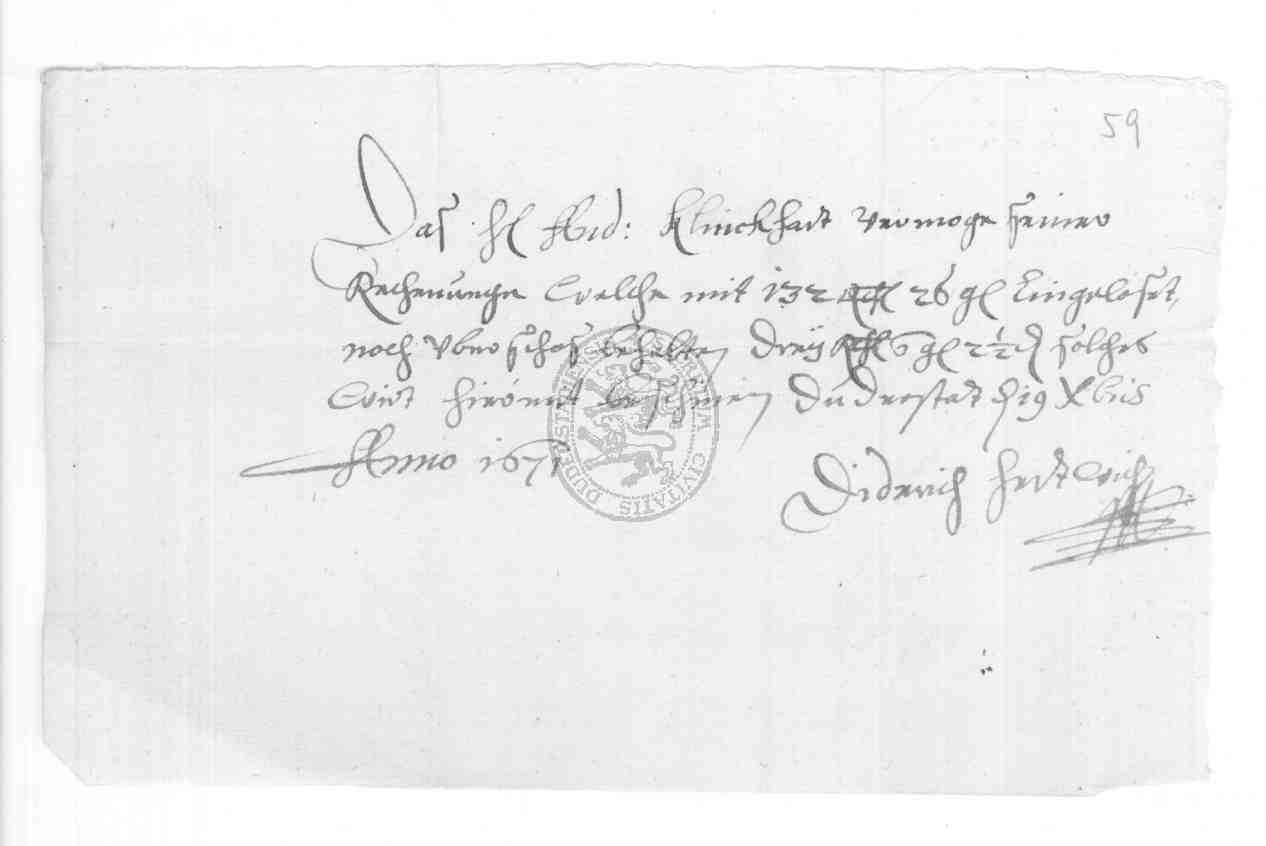 59
Das H. And: Klinckhart vermoge seiner
Rechenunge welche mit 132 Rthl 26 gl Eingelöset,
noch uberschos behalten dreÿ Rthl 6 gl 2½ d solches
wirt hirmit bescheinen Duderstadt d 19 Xbris
Anno 1671
Diderich Hertwich
SIGILLUM CIVITATIS DUDERSTADENSIS